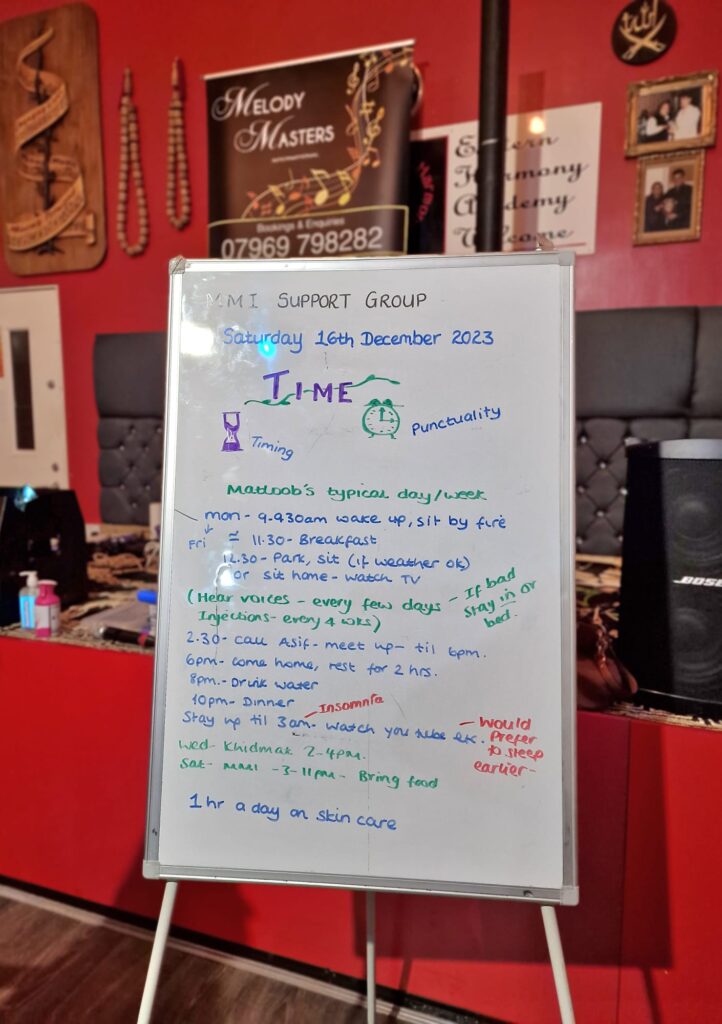 MELODY
MASTERS
Bookings & Enquiries
07969 798282
Eastern
Harmony
Academy
Welcome
MMI SUPPORT GROUP
Saturday 16th December 2023
TIME
Timing
Punctuality
Matloob's typical day/week
mon - 9-930am wake up, sit by fire
Fri = 11.30 - Breakfast
12.30 - Park, sit (if weather ok)
or sit home - watch TV
(Hear voices - every few days - If bad
stay in or
bed.
Injections - every 4 wks)
2.30 - call Asif - meet up - til 6pm.
6pm - come home, rest for 2 hrs.
8pm. - Drink water
10pm - Dinner
- Insomnia
Stay up til 3am - watch you tube etc.
- would
Prefer
to sleep
earlier -
Wed - Khidmak 2-4pm.
Sat - MMI - 3-11pm - Bring food
1 hr a day on skin care
BOSE